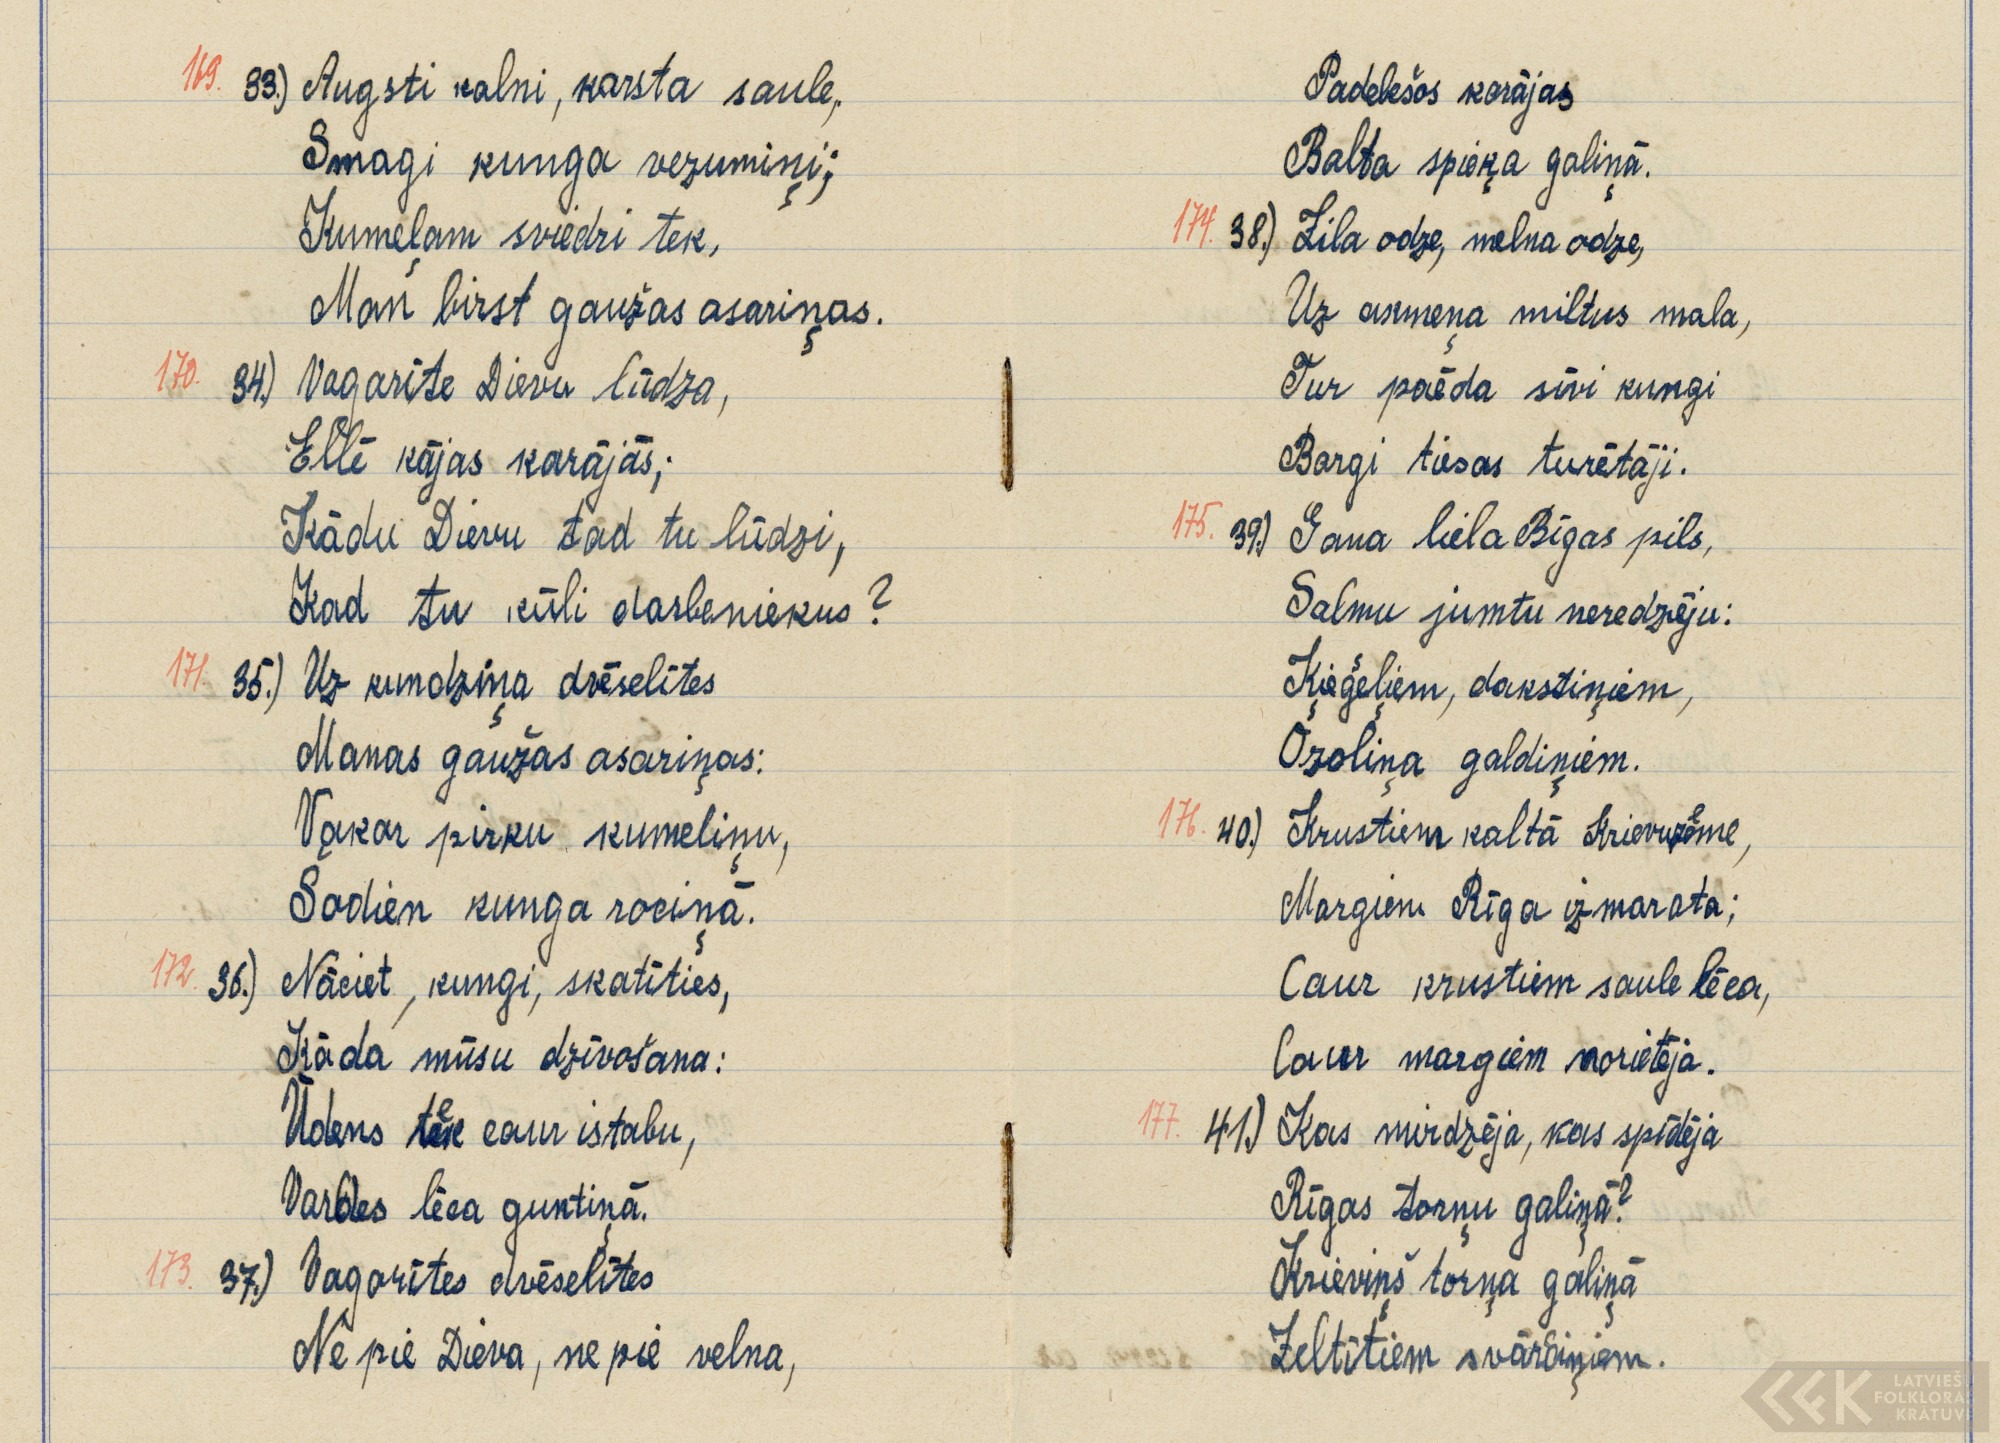 169. 33.) Augsti kalni, karsta saule,
Smagi kunga vezumiņi;
Kumeļam sviedri tek,
Man birst gaužas asariņas.
170. 34.) Vagarīte Dievu lūdza,
Ellē kājas karājās;
Kādu Dievu tad tu lūdzi,
Kad tu kūli darbeniekus?
171. 35.) Uz kundziņa dvēselītes
Manas gaužas asariņas:
Vakar pirku kumeliņu,
Šodien kunga rociņā.
172. 36.) Nāciet, kungi, skatīties,
Kāda mūsu dzīvošana:
Ūdens tek caur istabu,
Vardes lēca guntiņā.
173. 37.) Vagarītes dvēselītes
Ne pie Dieva, ne pie velna,
Padebešos karājas
Balta spieķa galiņā.
174. 38.) Zila odze, melna odze,
Uz akmeņa miltus mala,
Tur paēda sīvi kungi
Bargi tiesas turētāji.
175. 39.) Gana liela Rīgas pils,
Salmu jumtu neredzēju:
Ķieģeļiem, dakstiņiem,
Ozoliņa galdiņiem.
176. 40.) Krustiem kaltā Krievuzeme,
Margiem Rīga izmarota;
Caur krustiem saule lēca,
Caur margiem norietēja.
177. 41.) Kas mirdzēja, kas spīdēja
Rīgas torņu galiņā?
Krieviņš torņa galiņā
Zeltītiem svārciņiem.
LATVIEŠ
FOLKLORAS
KRĀTUV